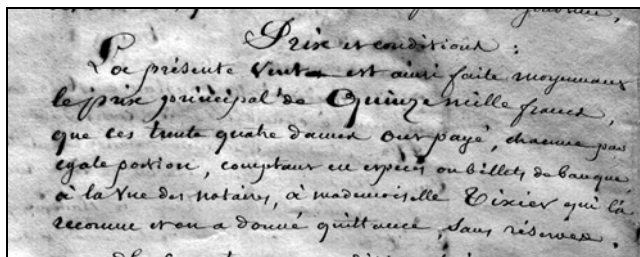 Prix et conditions :
La présente vente est ainsi faite moyennant
le prix principal de Quinze mille francs,
que ces trente quatre dames ont payé, chacune par
egale portion, comptant en espèces ou billets de banque
à la vue des notaires, à mademoiselle Tixier qui l'a
reconnu et en a donné quittance, sans réserves.